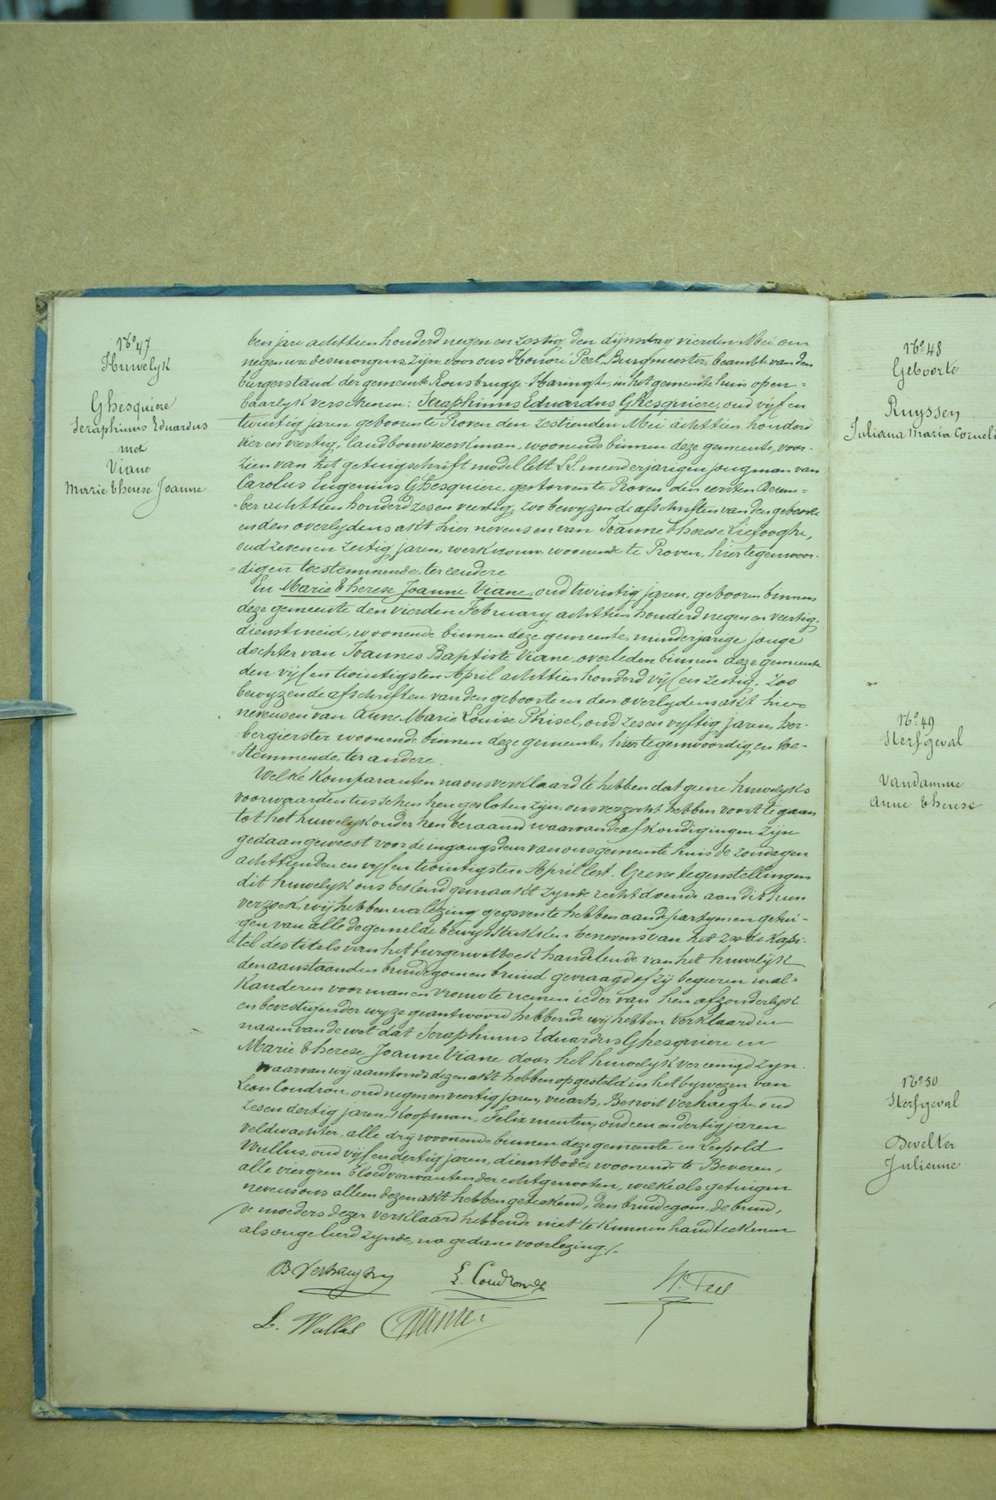 No 47
Huwelijk
Ghesquiere
Seraphinus Eduardus
met
Viane
Marie Therese Joanne
ten jare achttien honderd negen en zestig, den dijnstag vierden Mei om
negen ure des morgens, zijn voor ons Honoré Peel, Burgmeester, beambte van den
burgerstand der gemeente Rousbrugge Haringhe, in het gemeentehuis open-
baarlyk verschenen: Seraphinus Eduardus Ghesquiere, oud vijf en
twintig jaren geboren te Proven den zestienden Mei achttien honderd
vier en veertig, landbouwwerkman, woonende binnen deze gemeente, voor-
zien van het getuigschrift model lett. meerderjarigen jongman van
Carolus Eugenius Ghesquiere, gestorven te Proven den eersten Decem-
ber achttien honderd zes en veertig, zoo bewyzen de afschriften van den geboorte
en den overlydens akt hier nevens en van Joanne Therese Liefooghe,
oud zeven en zestig jaren, werkvrouw woonende te Proven, hier tegenwoor-
digen toestemmende, ter eendere
En Marie Therese Joanne Viane, oud twintig jaren, geboren binnen
deze gemeente den vierden February achttien honderd negen en veertig,
dienstmeid, woonende binnen deze gemeente, minderjarige jonge
dochter van Joannes Baptiste Viane, overleden binnen deze gemeente
den vijf en twintigsten April achttien honderd vijf en zestig, zoo
bewyzen de afschriften van den geboorte en den overlydens akt hier
nevens en van Anne Marie Louise Phisel, oud zes en vyftig jaren, her-
bergierster woonende binnen deze gemeente, hier tegenwoordig en toe-
stemmende, ter andere.
Welke komparanten na ons verklaard te hebben dat geene huwelijks
voorwaarden tusschen hen gesloten zijn, ons verzocht hebben voort te gaan
tot het huwelijk onder hen beraamd waarvan de afkondigingen zijn
gedaan geweest voor de ingangdeur van ons gemeente huis de zondagen
achttienden en vijf en twintigsten April lest. Geene tegenstellingen
dit huwelijk ons bekend gemaakt zynde recht doende aan dit hun
verzoek, wij hebben na lezing gegeven te hebben aan de partyen en getui-
gen van alle de gemelde bewijsstukken benevens van het zesde kapi-
tel des titels van het burgerwetboek handelende van het huwelijk
den aanstaanden bruidegom en bruid gevraagd of zij begeren mal-
kanderen voor man en vrouw te nemen ieder van hen afzonderlijk
en bevestigender wyze geantwoord hebbende wij hebben verklaard in
naam van de wet dat Seraphinus Eduardus Ghesquiere en
Marie Therese Joanne Viane door het huwelijk vereenigd zyn.
Waarvan wij aanstonds dezen akt hebben opgesteld in het bywezen van
Leon Coudron, oud negen en veertig jaren, veearts, Benoit Verhaeghe oud
zes en dertig jaren, koopman, Felix oud een en dertig jaren
veldwachter, alle drij woonende binnen deze gemeente en Leopold
Wullus, oud vijf en dertig jaren, dienstbode, woonende te Beveren,
alle vier geen bloedverwanten der echtgenooten, welke als getuigen
nevens ons alleen dezen akt hebben geteekend, den bruidegom, de bruid,
en moeders dezer verklaard hebbende niet te kunnen handteekenen
als ongeleerd zynde, na gedane voorlezing/.
B Verhaeghe
L. Coudron
H. Peel
L. Wullus
No 48
Geboorte
Ruyssen
Juliana Maria Corneli
No 49
Sterfgeval
Vandamme
Anne Therese
No 50
Sterfgeval
Develter
Julienne